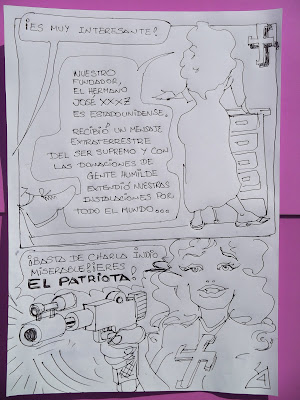 ¡ES MUY INTERESANTE!
NUESTRO
FUNDADOR,
EL HERMANO
JOSÉ XXXZ
ES ESTADOUNIDENSE.
RECIBIÓ UN MENSAJE
EXTRATERRESTRE
DEL SER SUPREMO Y CON
LAS DONACIONES DE
GENTE HUMILDE
EXTENDIÓ NUESTRAS
INSTALACIONES POR
TODO EL MUNDO...
¡BASTA DE CHARLA INDIO
MISERABLE! ¡ERES
EL PATRIOTA!